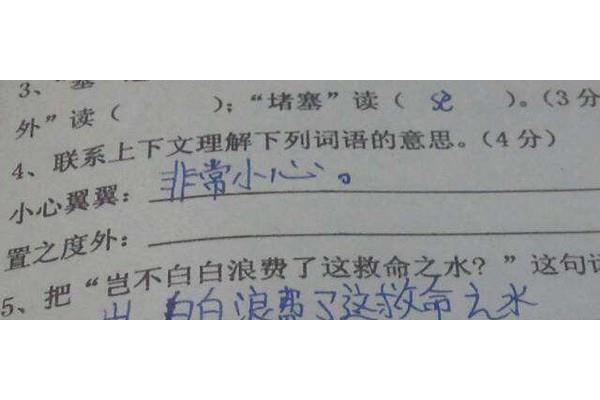 3、“塞
外”读（ ）；“堵塞”读（ se ）。（3分
4、联系上下文理解下列词语的意思。（4分）
小心翼翼：非常小心。
置之度外：
5、把“岂不白白浪费了这救命之水？”这句话
白白浪费了这救命之水